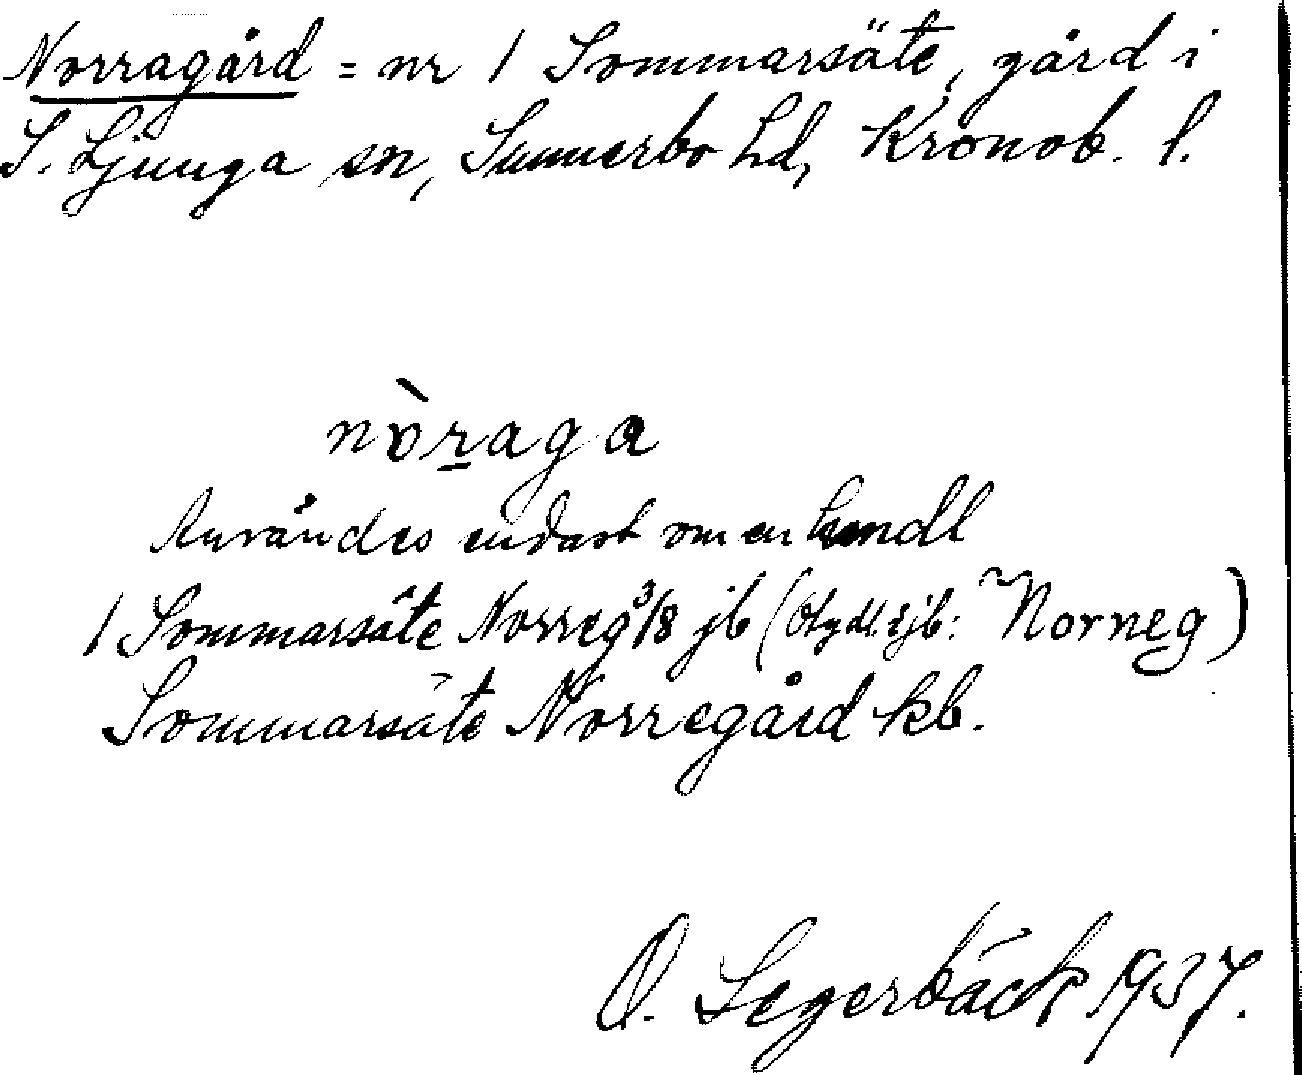 Norragård = nr 1 Sommarsäte, gård i
S. Ljunga sn, Sunnerbo hd, Kronob. l.
nòraga
Användes endast om en hmdl
1 Sommarsäte Norreg 3/8 jb (Otydl. i jb: Norneg)
Sommarsäte Norregård kb.
O. Segerbäck 1937.